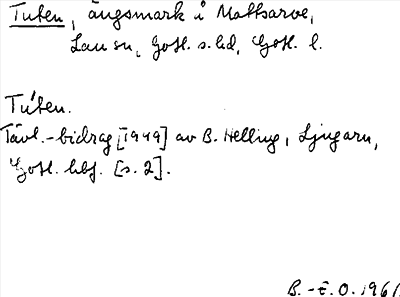 Tuten, ängsmark i Mattsarve,
Lau sn, Gotl. s. hd, Gotl. l.
Túten.
Tävl.-bidrag [1949] av B. Helling, Ljugarn,
Gotl. hbf. [s. 2].
B.-E. O. 1961